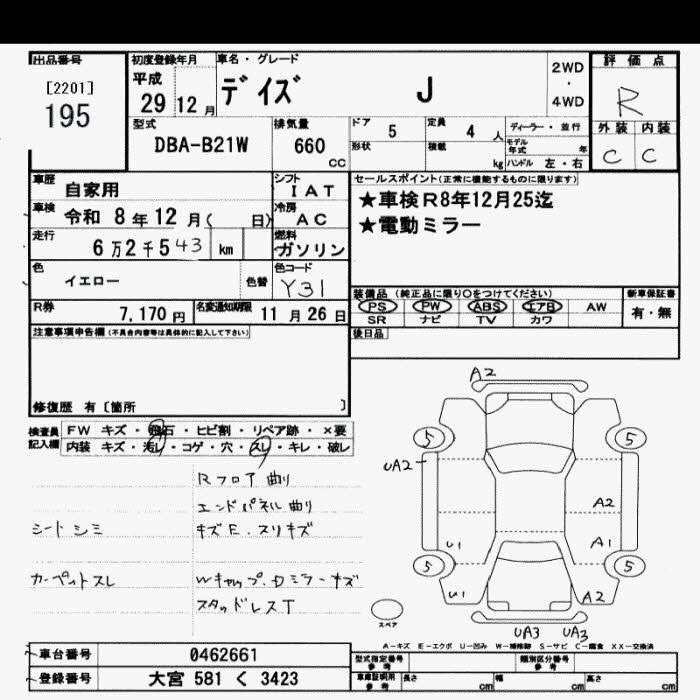 出品番号
[2201]
195
初度登録年月
平成
29 12 月
車名・グレード
デイズ J
2WD
・
4WD
評価点
R
外装 内装
C C
型式
DBA-B21W
排気量
660
CC
ドア 5
定員 4 人
形状
積載 kg
ディーラー・並行
モデル年式 年
ハンドル 左・右
車歴 自家用
シフト IAT
車検 令和 8 年 12 月( 日)
冷房 AC
走行 6万2千543 km
燃料 ガソリン
色 イエロー 色替
色コード Y31
R券 7,170 円
名変通知期限 11 月 26 日
セールスポイント(正常に機能するものに限ります)
★車検R8年12月25迄
★電動ミラー
装備品(純正品に限り〇をつけてください)
新車保証書
PS PW ABS エアB AW
有・無
SR ナビ TV カワ
後日品
注意事項申告欄(不具合内容等は具体的に記入して下さい)
修復歴 有〔箇所 〕
検査員記入欄
FW キズ・飛石・ヒビ割・リペア跡・×要
内装 キズ・汚レ・コゲ・穴・スレ・キレ・破レ
Rフロア曲り
エンドパネル曲り
シートシミ
キズE・スリキズ
カーペットスレ
Wキャップ・Dミラーキズ
スタッドレスT
A2
5 5
UA2
A2
U1 A1
5 5
U1 A2
スペア
UA3 UA3
A-キズ E-エクボ U-凹み W-補修跡 S-サビ C-腐食 XX-交換済
車台番号 0462661
登録番号 大宮 581 く 3423
型式指定番号
参考
類別区分番号
参考
車庫証明用
参考
長さ cm 幅 cm 高さ cm